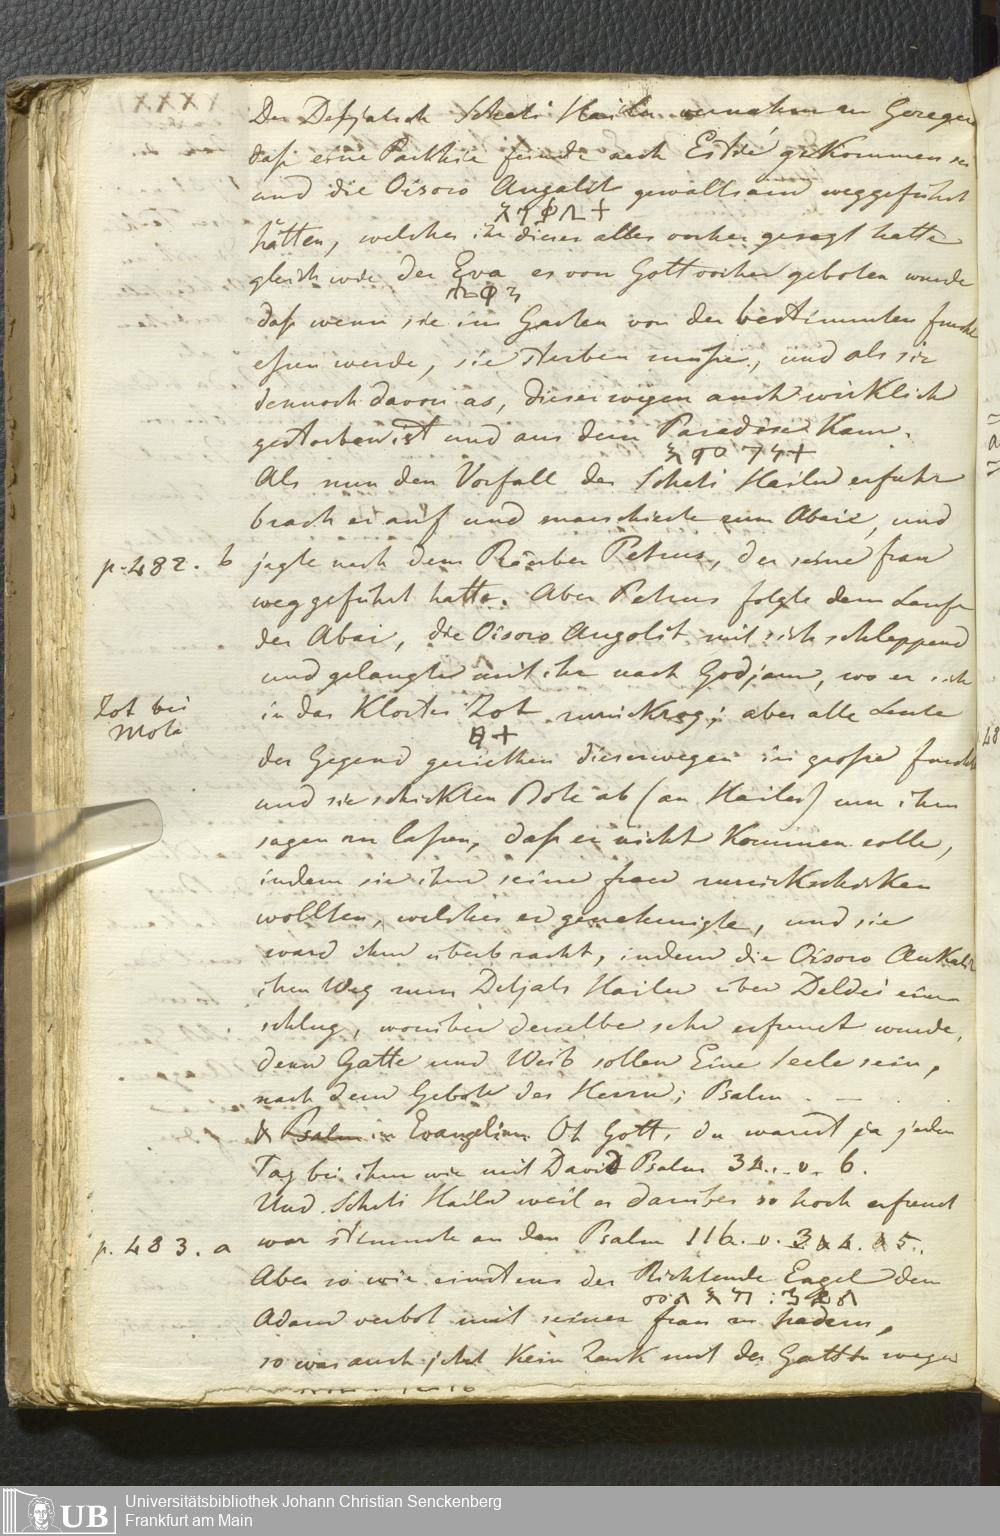 Der Defjatsch Scheti Hailu vernahm zu Goregora
daß eine Parthie feinde nach Eiddé gekommen sei
und die Oisoro Angalit gewaltsam weggeführt
አንቆሊት
hätten, welches ihr dieses alles vorher gesagt hatte
gleich wie der Eva es von Gott vorher geboten wurde
ሔዋን
daß wenn sie im Garten von der bestimmten frucht
eßen werde, sie sterben müße, und als sie
dennoch davon as, dieserwegen auch wirklich
gestorben ist und aus dem Paradise kam.
Als nun den Vorfall der Scheti Hailu erfuhr
brach er auf und marschierte zum Abaie, und
p. 482. b jagte nach dem Räuber Petrus, der seine frau
weggeführt hatte. Aber Petrus folgte dem Laufe
des Abai, die Oisoro Angolit mit sich schleppend
und gelangte mit ihr nach Godjam, wo er sich
Zot bei
Mota
in das Kloster Zot zurückzog; aber alle Leute
der Gegend geriethen dieserwegen in große furcht
und sie schickten Bote ab (an Hailu) um ihm
sagen zu laßen, daß er nicht kommen solle,
indem sie ihm seine frau zurückschicken
wollten, welches er genehmigte, und sie
ward ihm überbracht, indem die Oisoro Ankalit
ihren Weg zum Detjats Hailu über Deldei ein-
schlug, worüber derselbe sehr erfreut wurde,
denn Gatte und Weib sollen Eine Seele sein,
nach dem Gebote des Herrn; Psalm . —
Psalm in Evangelium. Oh Gott, du warest ja jeden
Tag bei ihm wie mit David Psalm 34. v. 6.
Und Scheti Hailu weil er darüber so hoch erfreut
p. 483. a war stimmte an den Psalm 116. v. 3 & 4. & 5.
Aber so wie einstens der Richtende Engel dem
Adam verbot mit seiner frau zu hadern,
so war auch jetzt kein Zank mit der Gattin wegen
Universitätsbibliothek Johann Christian Senckenberg
Frankfurt am Main
UB